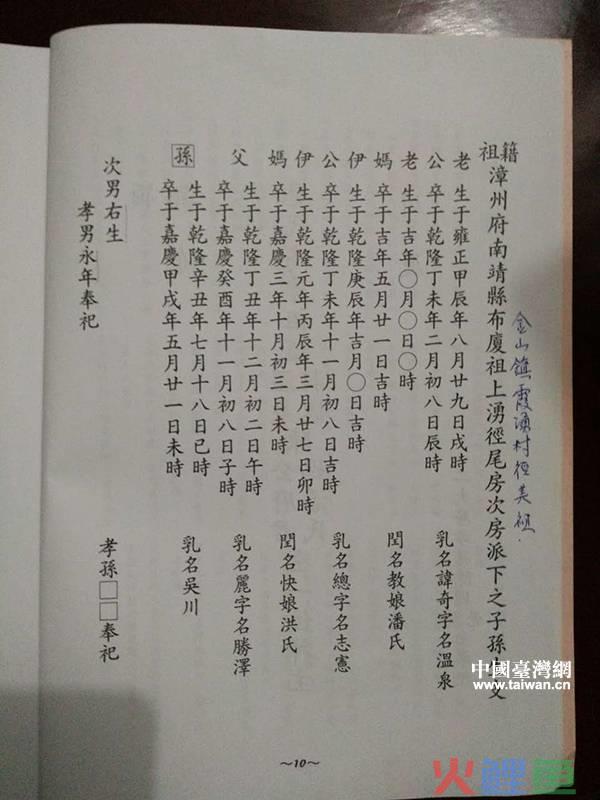 祖籍漳州府南靖縣布廈祖上湧徑尾房次房派下之子孫
金山鎮霞湧村徑美祖.
老 生于雍正甲辰年八月廿九日戌時
公 卒于乾隆丁未年二月初八日辰時 乳名諱奇字名溫泉
老 生于吉年〇月〇日〇時
媽 卒于吉年五月廿一日吉時 閏名教娘潘氏
伊 生于乾隆庚辰年吉月〇日吉時
公 卒于乾隆丁未年十一月初八日吉時 乳名總字名志憲
伊 生于乾隆元年丙辰年三月廿七日卯時
媽 卒于嘉慶三年十月初三日未時 閏名快娘洪氏
生于乾隆丁丑年十二月初二日午時
父 卒于嘉慶癸酉年十一月初八日子時 乳名麗字名勝澤
生于乾隆辛丑年七月十八日巳時
孫 卒于嘉慶甲戌年五月廿一日未時 乳名吳川
次男右生
孝男永年奉祀 孝孫□□奉祀
~10~
中國臺灣網
www.taiwan.cn
火鯉魚